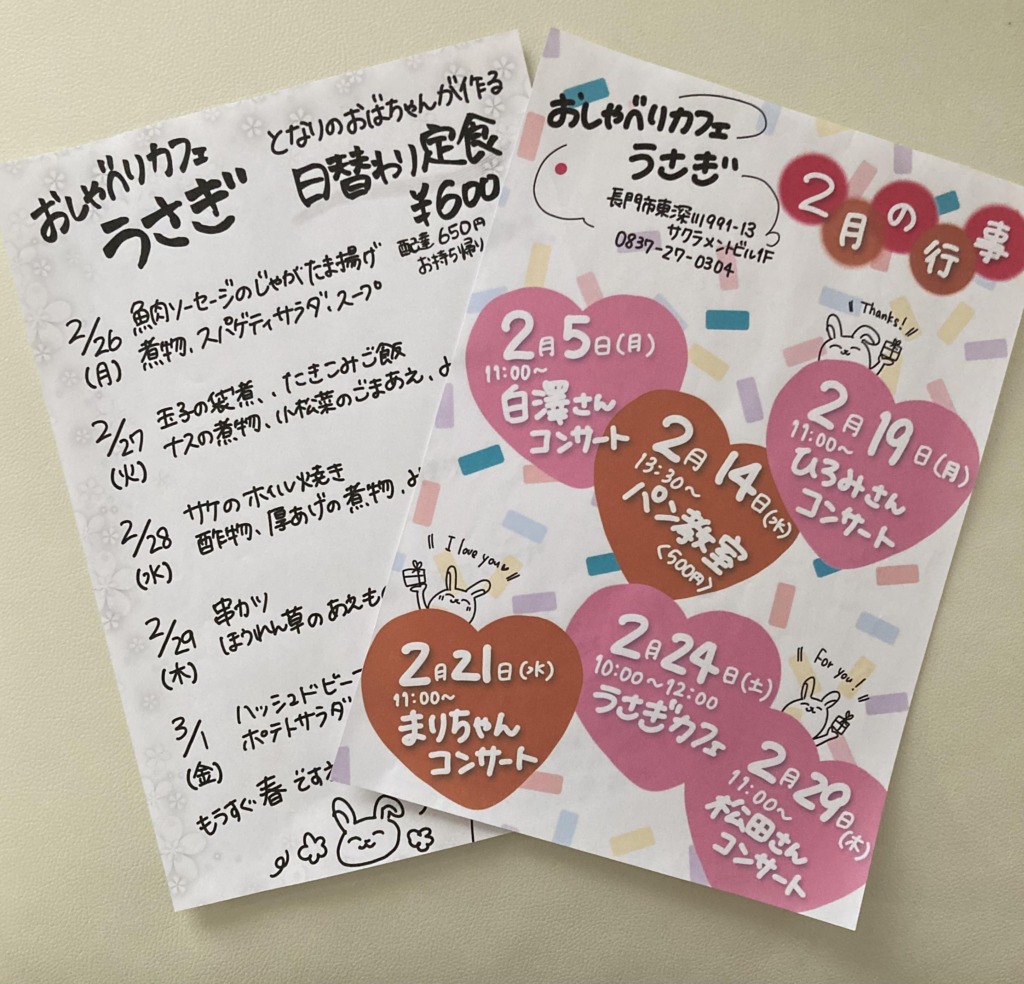 おしゃべりカフェ
うさぎ
となりのおばちゃんが作る
日替わり定食
¥600
配達 650円
お持ち帰り
2/26 魚肉ソーセージのじゃがたま揚げ
(月) 煮物、スパゲティサラダ、スープ
2/27 玉子の袋煮、、たきこみご飯
(火) ナスの煮物、小松菜のごまあえ、
2/28 サケのホイル焼き
(水) 酢物、厚あげの煮物、
2/29 串カツ
(木) ほうれん草のあえ
3/1 ハッシュドビー
(金) ポテトサラダ
もうすぐ春ですね
おしゃべりカフェ
うさぎ
長門市東深川991-13
サクラメントビル1F
0837-27-0304
2月の行事
2月5日(月)
11:00～
白澤さん
コンサート
2月14日(水)
13:30～
パン教室
〈500円〉
Thanks!
2月19日(月)
11:00～
ひろみさん
コンサート
I love you♥
2月21日(水)
11:00～
まりちゃん
コンサート
2月24日(土)
10:00～12:00
うさぎカフェ
For you!
2月29日(木)
11:00～
松田さん
コンサート